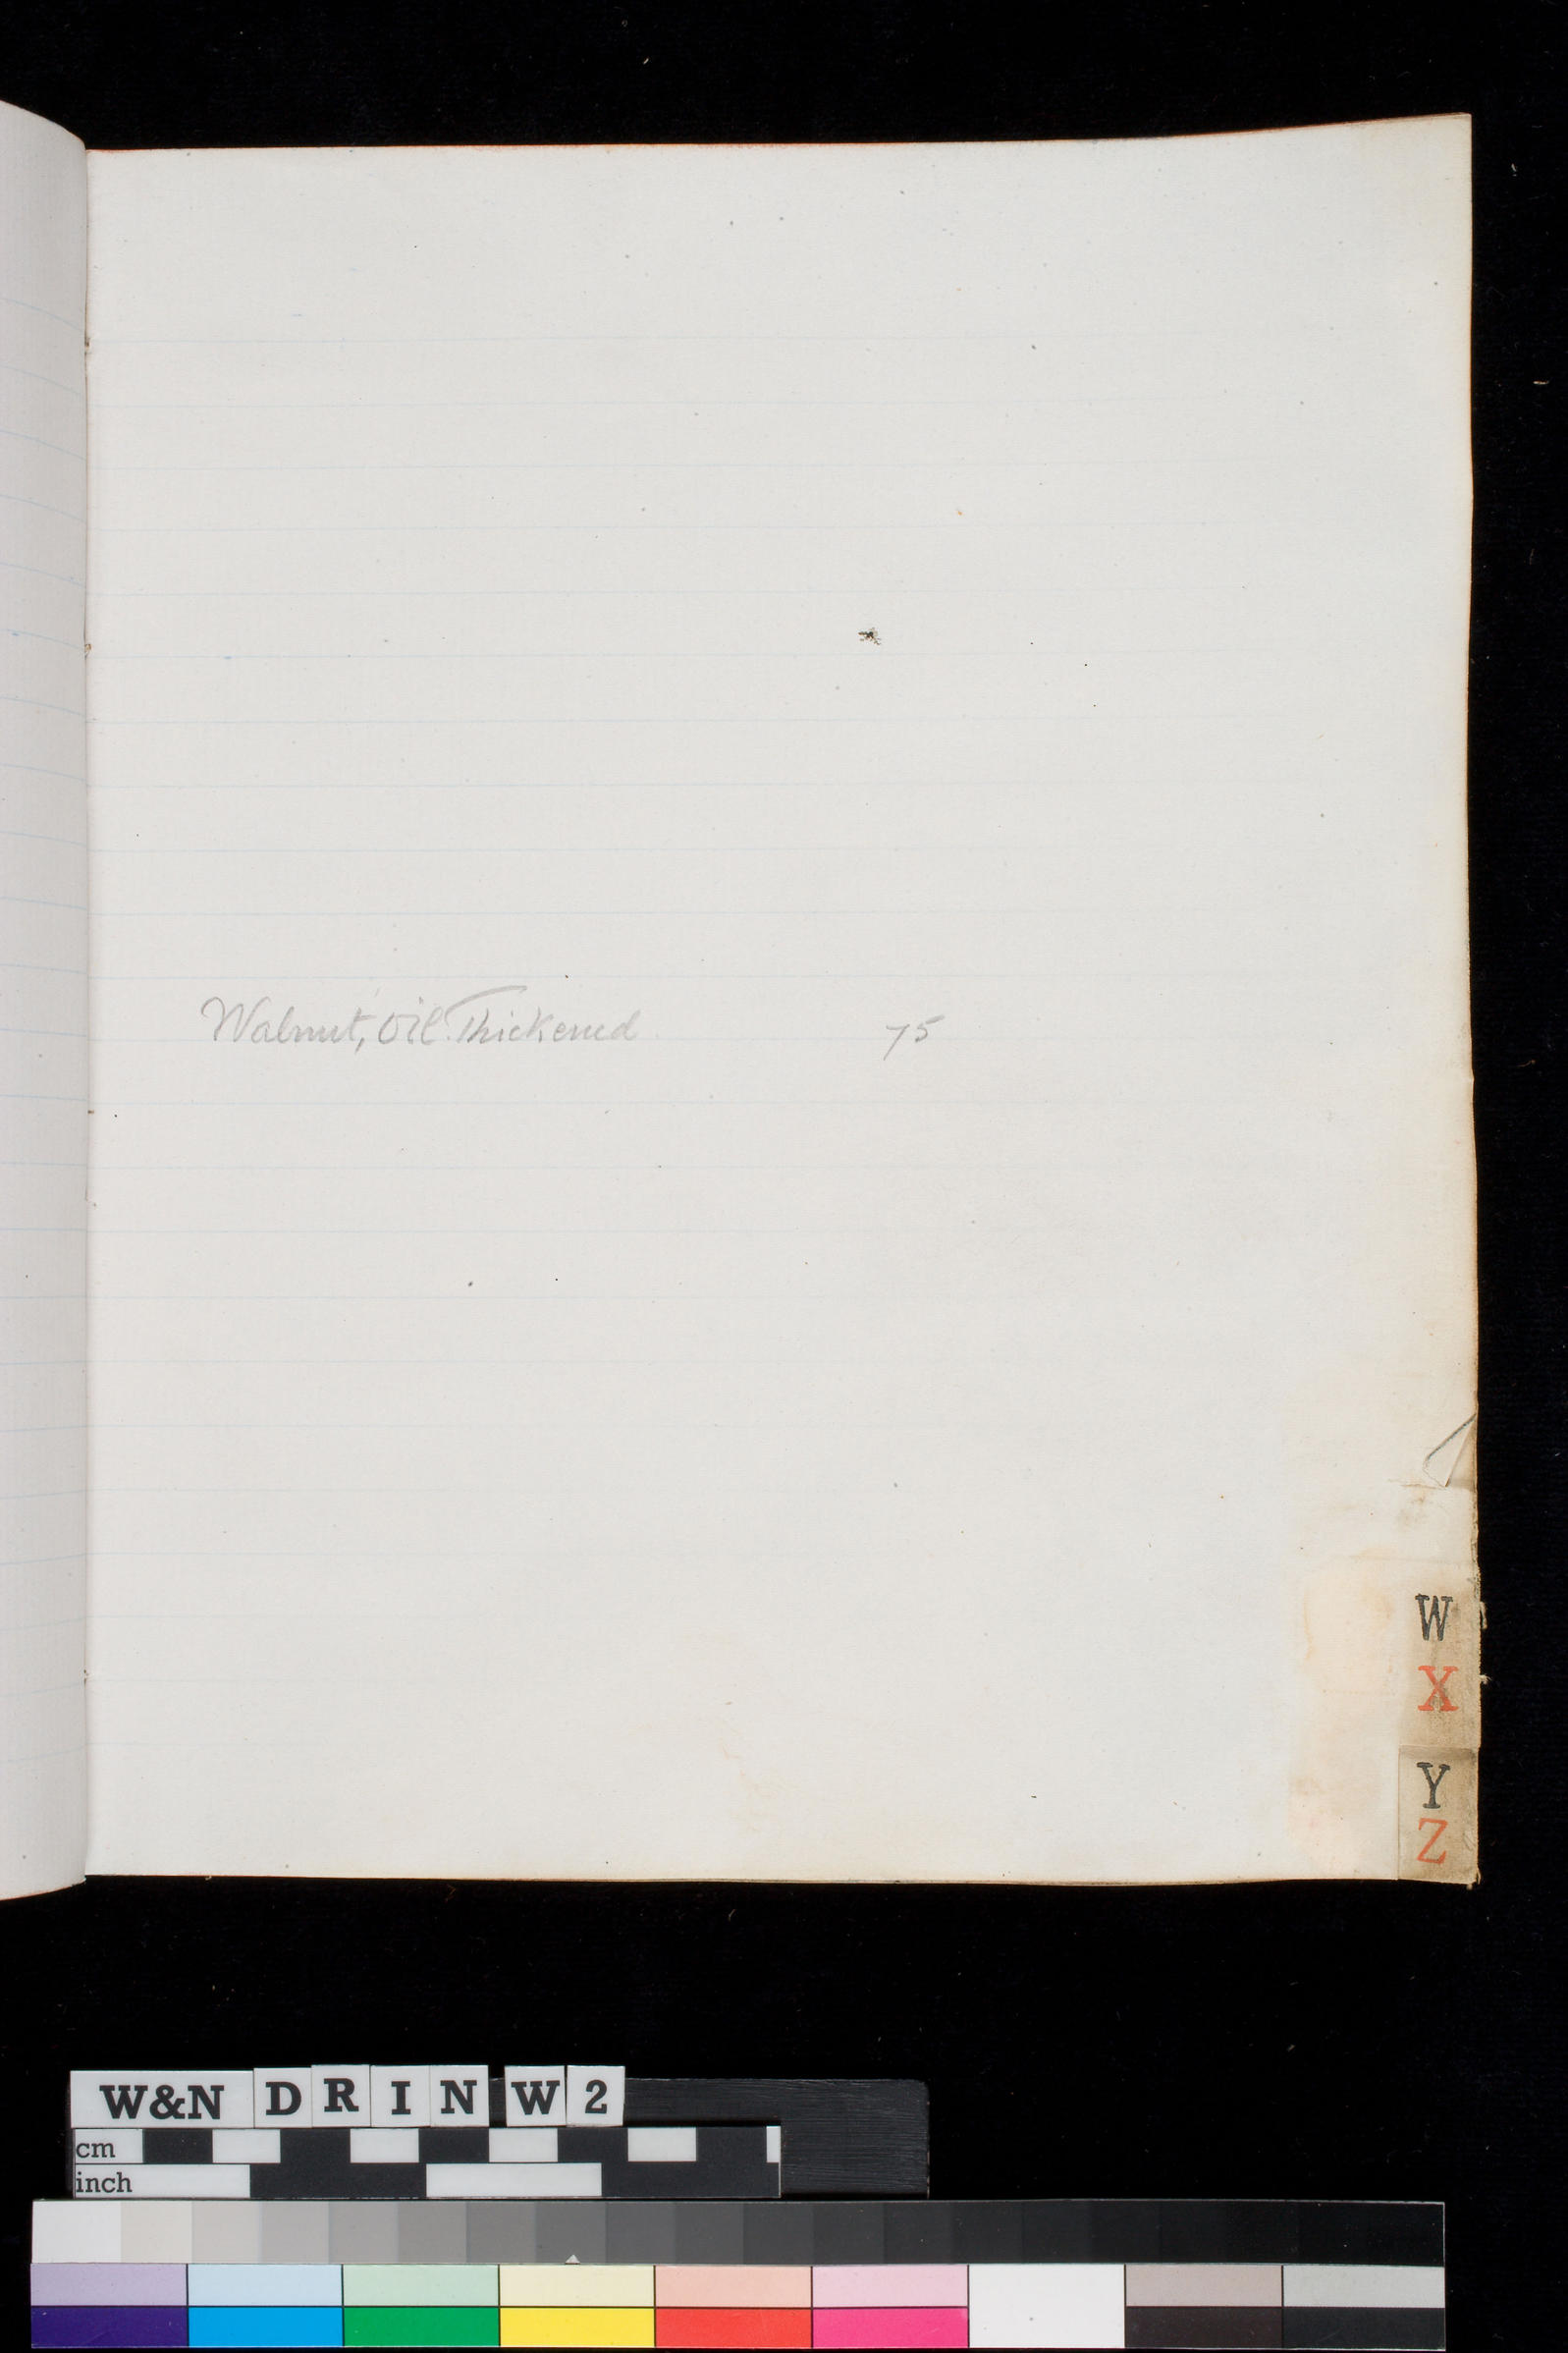 Walnut, Oil. Thickened 75
W
X
Y
Z
W&N D R I N W 2
cm
inch